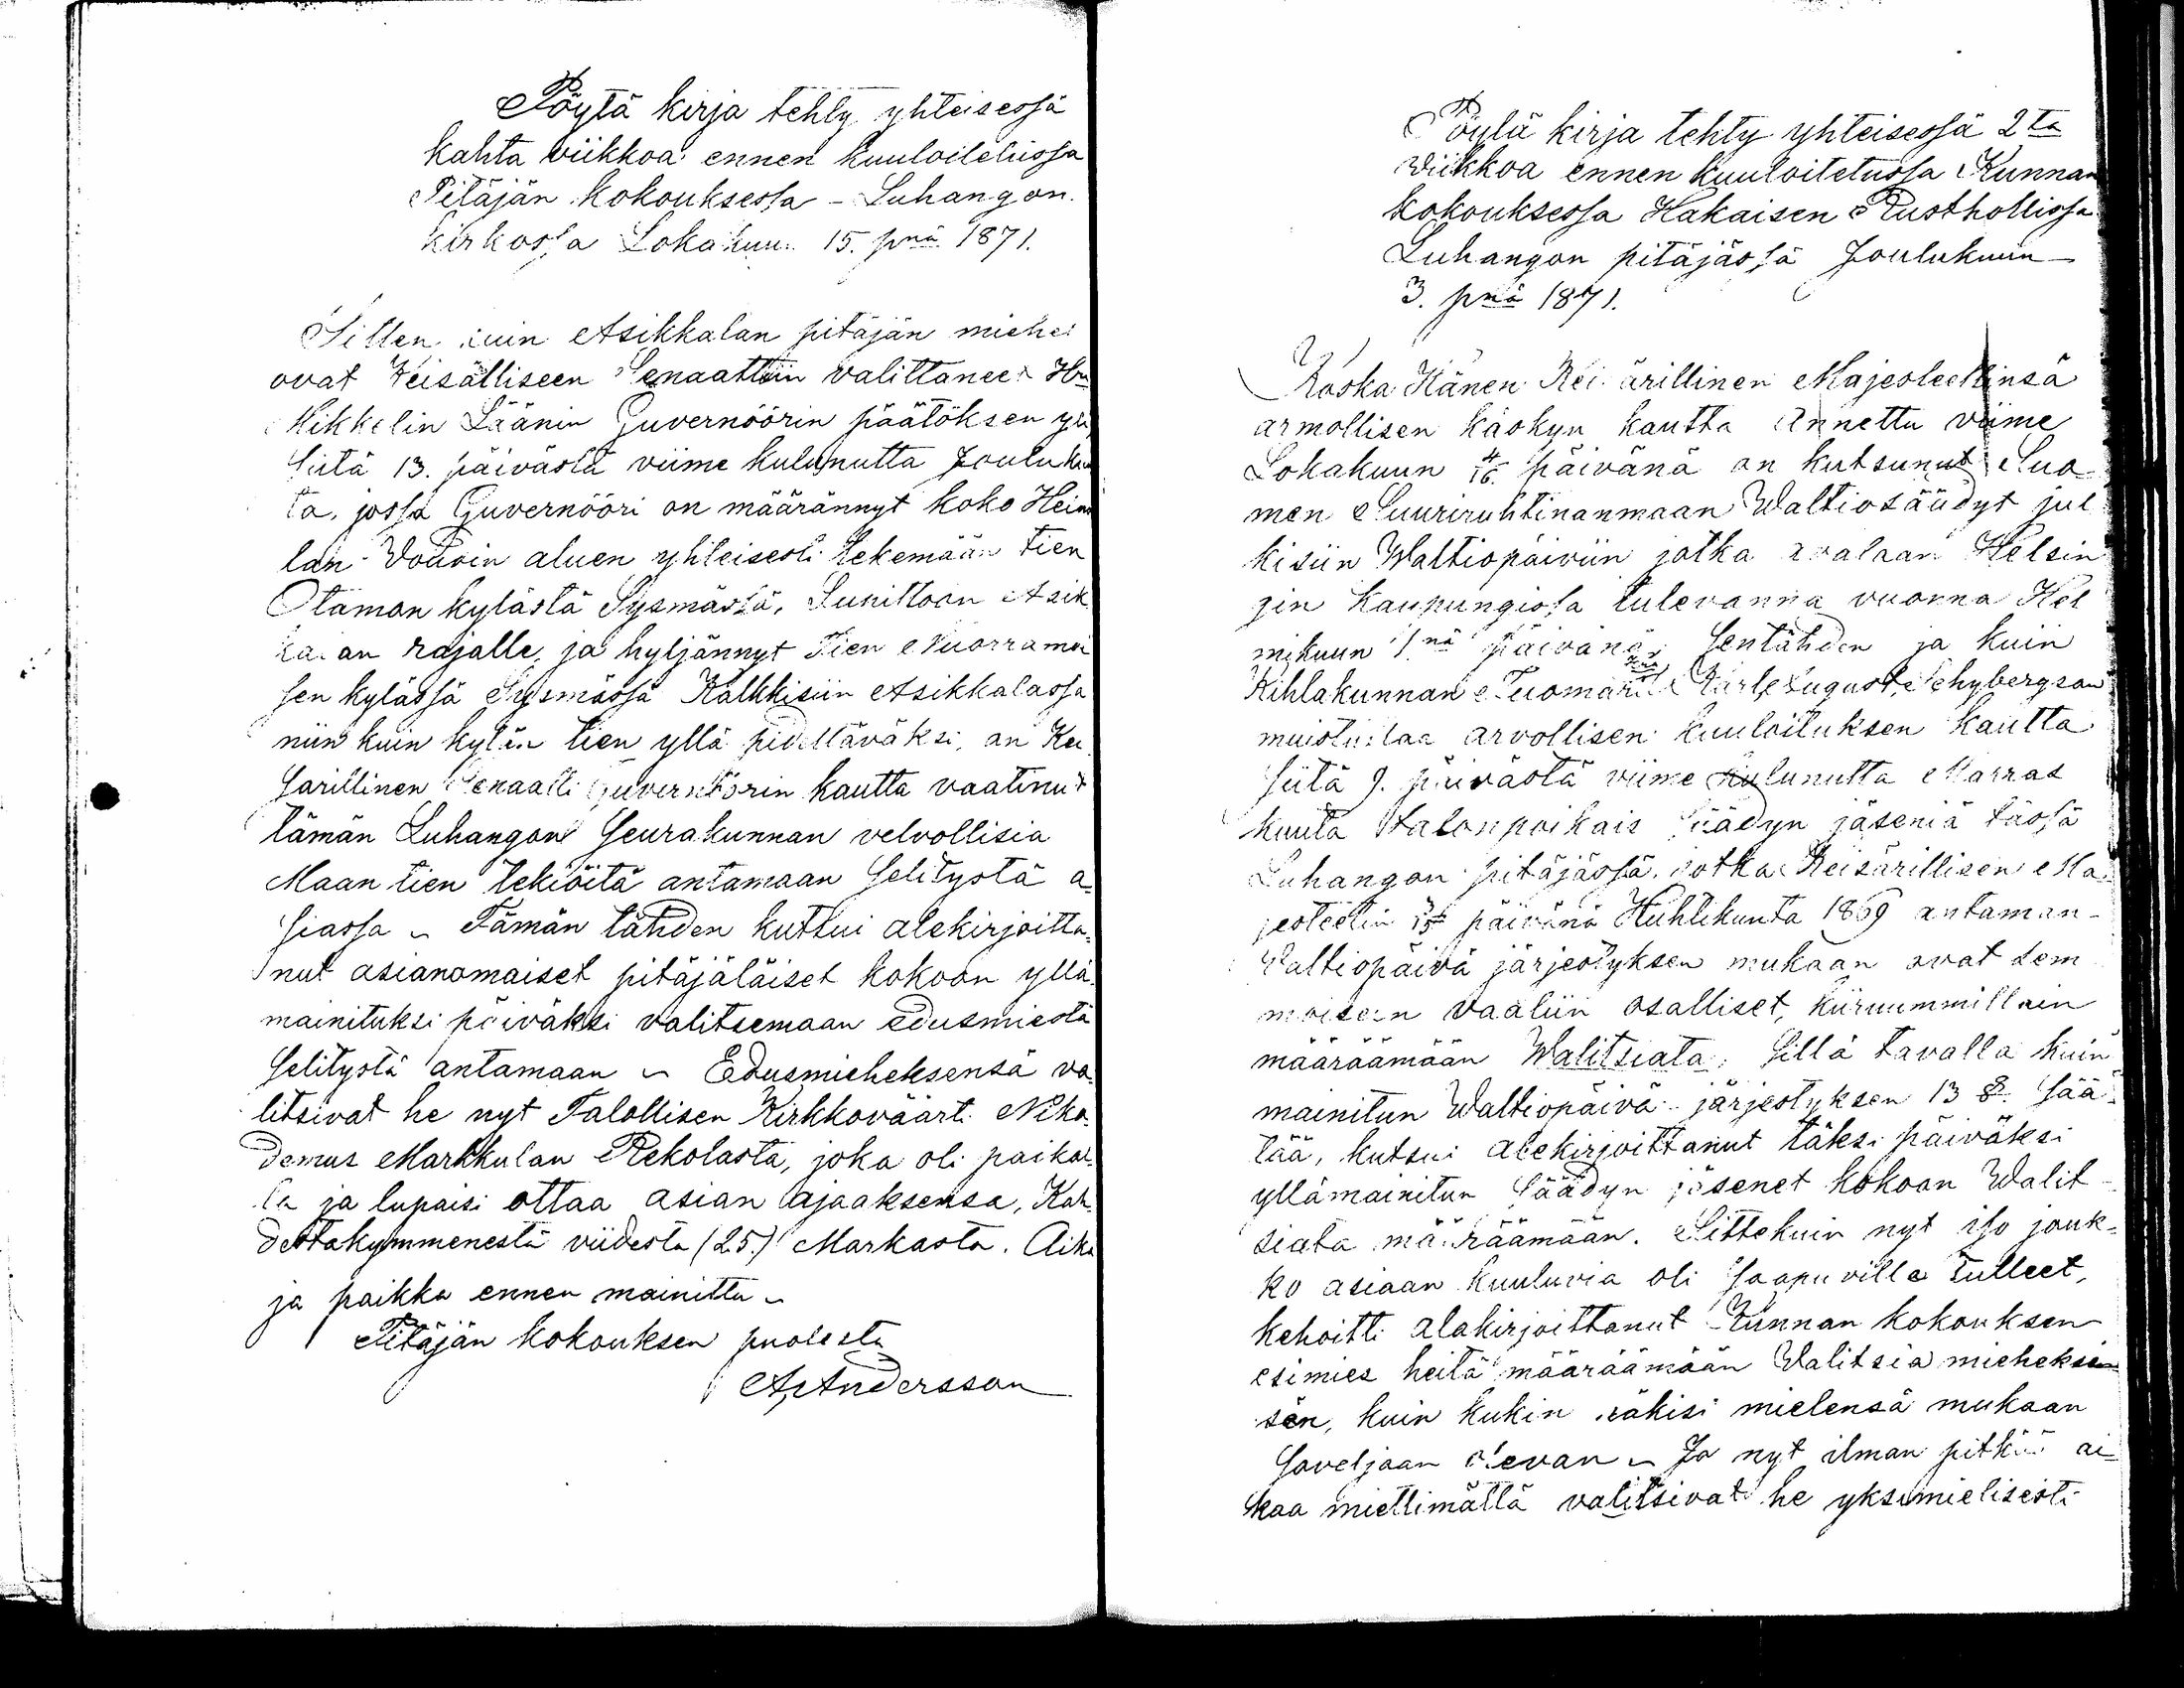 Pöytä kirja tehty yhteisessä
kahta viikkoa ennen kuuloitetussa
Pitäjän kokouksessa – Luhangon
kirkossa Lokakuun 15. pnä 1871.
Sitten kuin Asikkalan pitäjän miehet
ovat Keisälliseen Senaattiin valittaneet Hra
Mikkelin Läänin Guvernöörin päätöksen yli
Siitä 13. päivästä viime kulunutta Jouluku
ta, jossa Guvernööri on määrännyt koko Hein
lan Vouvin aluen yhteisesti tekemään tien
Otamon kylästä Sysmässä, Sunittoon Asik
kalan rajalle, ja hyljännyt Tien Nuorramoi
sen kylässä Sysmässä Kalkkisiin Asikkalassa
niin kuin kylän tien yllä pidettäväksi, on Kei
sarillinen Senaatti Guvernöörin kautta vaatinut
tämän Luhangon Seurakunnan velvollisia
Maan tien tekiöitä antamaan Selitystä a-
siassa ~ Tämän tähden kuttui alekirjoitta-
nut asianomaiset pitäjäläiset kokoon yllä
mainituksi päiväksi valitsemaan edusmiestä
Selitystä antamaan ~ Edusmieheksensä va-
litsivat he nyt Talollisen Kirkkoväärti Niko-
demus Markkulan Rekolasta, joka oli paikal-
la ja lupaisi ottaa asian ajaaksensa, Kah-
destakymmenestä viidestä (25.) Markasta. Aika
ja paikka ennen mainittu ~
Pitäjän kokouksen puolesta
A Andersson
Pöytä kirja tehty yhteisessä 2ta
viikkoa ennen kuuloitetussa Kunnan
kokouksessa Hakaisen Rusthollissa
Luhangon pitäjässä Joulukuun
3. pnä 1871.
Koska Hänen Keisärillinen Majesteettinsä
armollisen käskyn kautta Annettu viime
Lokakuun 4/16. päivänä on kutsunut Suo-
men Suuriruhtinanmaan Waltiosäädyt jul
kisiin Waltiopäiviin jotka avataan Helsin
gin Kaupungissa tulevanna vuonna Hel
mikuun 1.nä päivänä, Sentähden ja kuin
Kihlakunnan Tuomari Hra Karl August Schybergson
muistuttaa arvollisen kuuloituksen kautta
Siitä 9. päivästä viime kulunutta Marras
kuuta Talonpoikais Säädyn jäseniä tässä
Luhangon pitäjässä, jotka Keisärillisen Ma-
jesteetin päivänä Huhtikuuta 1869 antaman
Waltiopäivä järjestyksen mukaan ovat sem
moiseen vaaliin osalliset, kiiruummittain
määräämään Walitsiata, Sillä tavalla kuin
mainitun Waltiopäivä-järjestyksen 13 §. Sää-
tää, kutsui alekirjoittanut täksi päiväksi
yllämainitun Säädyn jäsenet kokoon Walit-
siata määräämään. Sittekuin nyt iso jouk-
ko asiaan kuuluvia oli Saapuville tulleet,
kehoitti alakirjoittanut Kunnan kokouksen
esimies heitä määräämään Walitsia mieheksen
sän, kuin kukin näkisi mielensä mukaan
Soveljaan olevan ~ Ja nyt ilman pitkää ai-
kaa miettimättä valitsivat he yksimielisesti